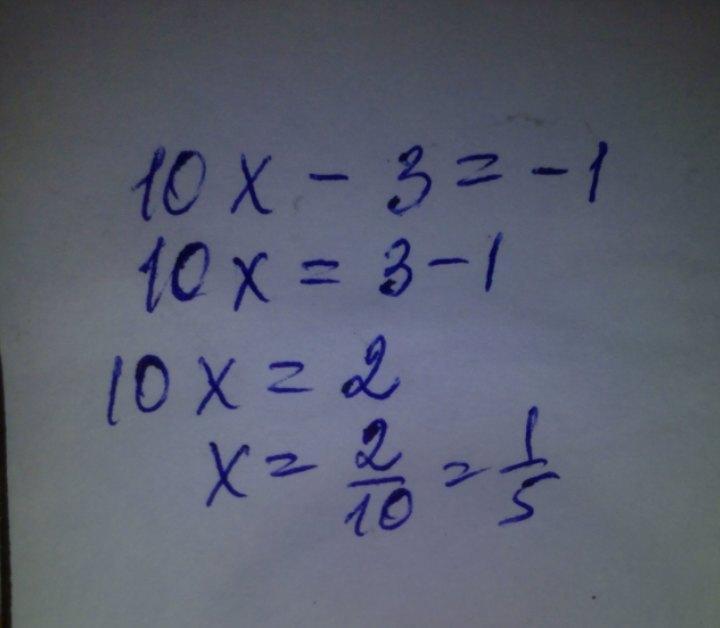 10x - 3 = -1
10x = 3 - 1
10x = 2
x = 2/10 = 1/5